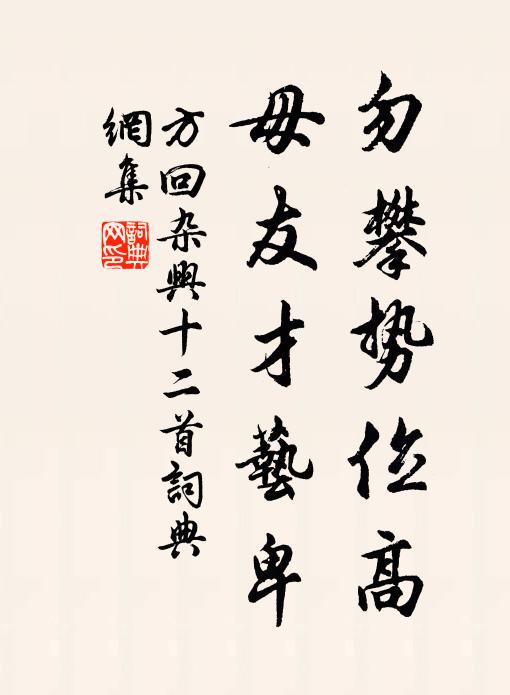 勿攀势位高
毋友才藝卑
方回杂興十二首詞典
網集
詞典網印